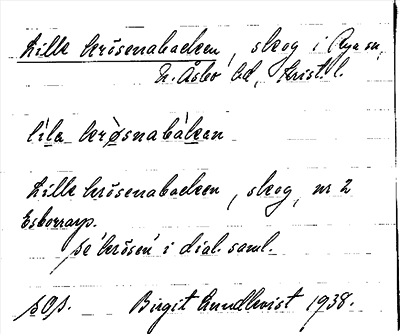 Lille krösenabacken, skog i Rya sn,
N. Åsbo hd, Krist. l.
lila krøsnabákan
Lille krösenabacken, skog, nr 2
Esborrarp.
se 'krösen' i dial. saml.
sOp. Birgit Lundkvist 1938.